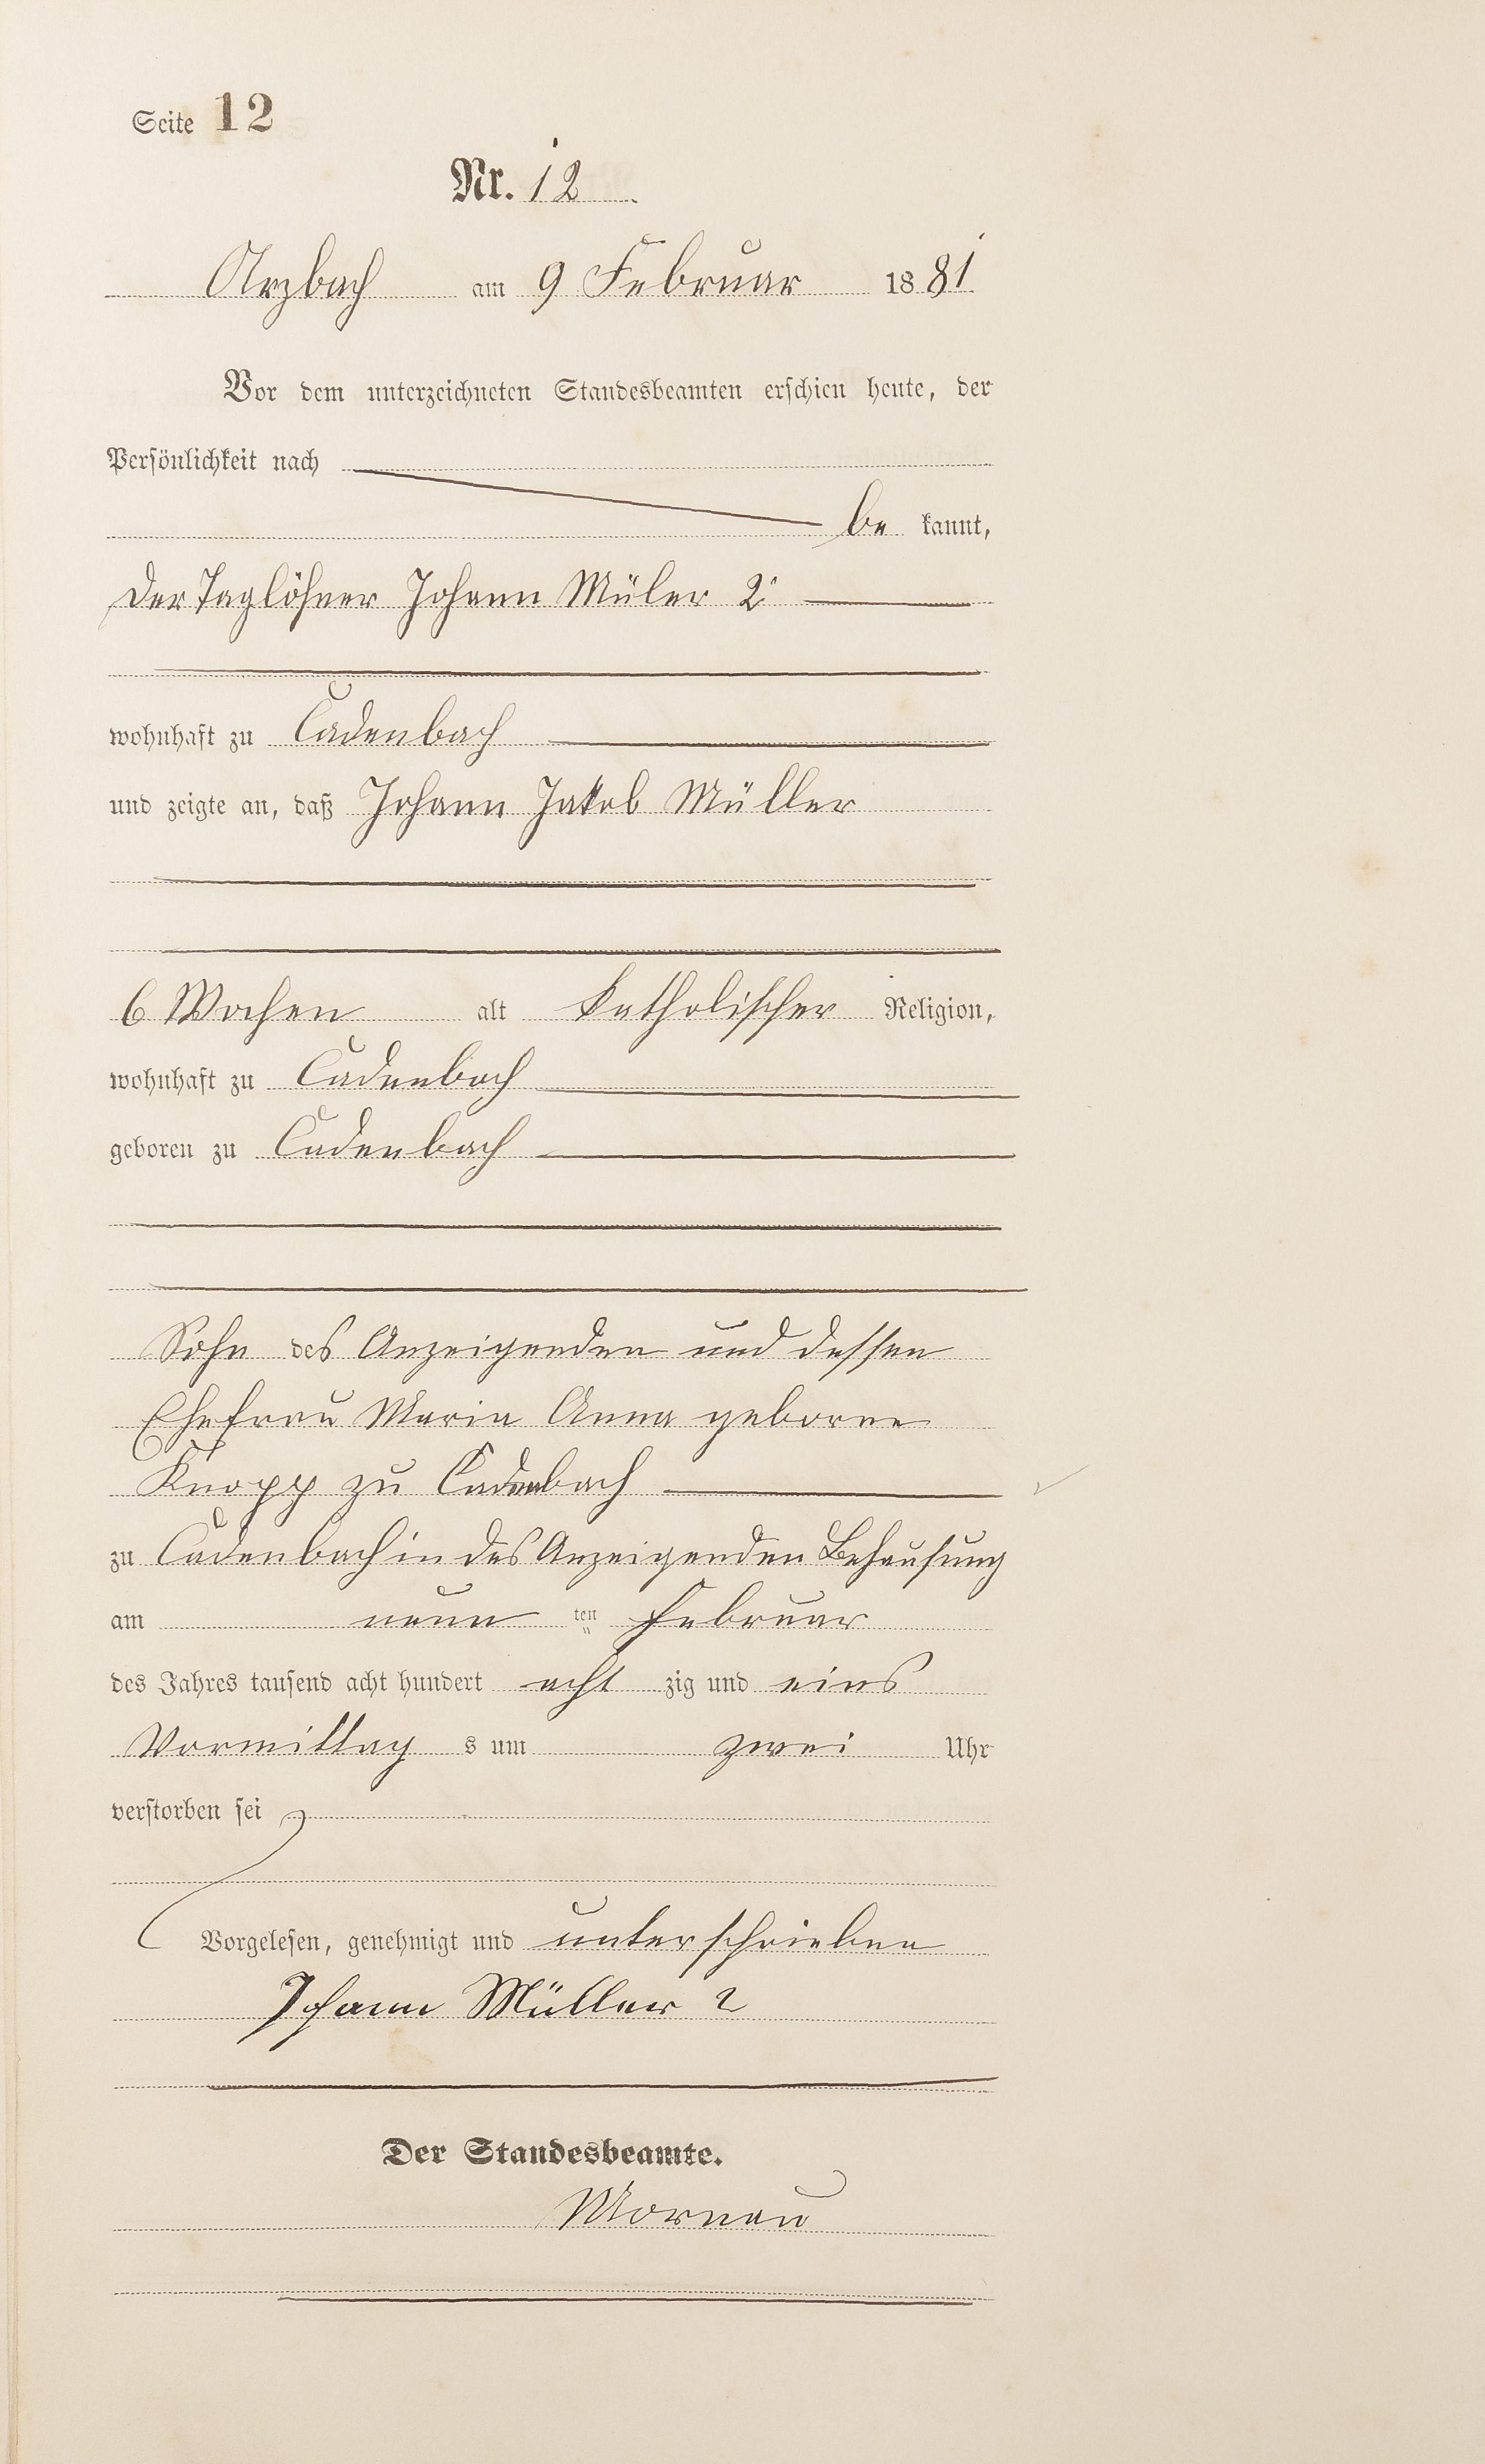 Seite 12
Nr. 12
Arzbach am 9 Februar 1881
Vor dem unterzeichneten Standesbeamten erschien heute, der
Persönlichkeit nach
be kannt,
der Taglöhner Johann Müler 2r
wohnhaft zu Cadenbach
und zeigte an, daß Johann Jakob Müller
6 Wochen alt katholischer Religion,
wohnhaft zu Cadenbach
geboren zu Cadenbach
Sohn des Anzeigenden und dessen
Ehefrau Maria Anna geborne
Knopp zu Cadenbach
zu Cadenbach in des Anzeigenden Behausung
am neun ten Februar
des Jahres tausend acht hundert acht zig und eins
Vormittag s um zwei Uhr
verstorben sei
Vorgelesen, genehmigt und unterschrieben
Johann Müller 2
Der Standesbeamte.
Mornau